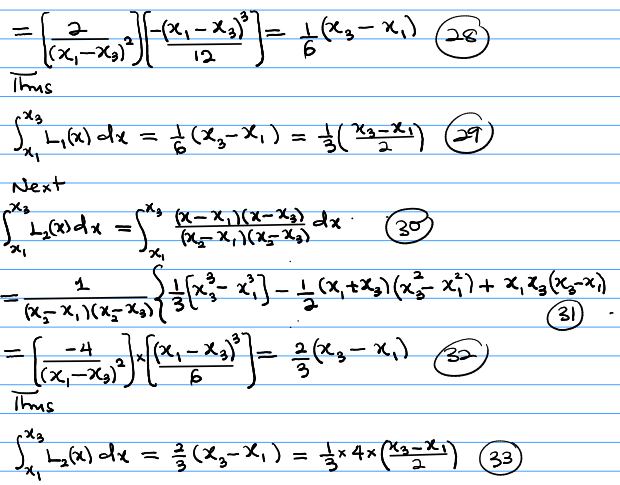 = [2/(x₁-x₃)²][-(x₁-x₃)³/12] = 1/6 (x₃-x₁) (28)
Thus
∫ₓ₁^x₃ L₁(x) dx = 1/6 (x₃-x₁) = 1/3 ((x₃-x₁)/2) (29)
Next
∫ₓ₁^x₃ L₂(x) dx = ∫ₓ₁^x₃ (x-x₁)(x-x₃)/((x₂-x₁)(x₂-x₃)) dx . (30)
= 1/((x₂-x₁)(x₂-x₃)) {1/3 [x₃³-x₁³] - 1/2 (x₁+x₃)(x₃²-x₁²) + x₁x₃(x₃-x₁) (31) .
= [-4/(x₁-x₃)²] × [(x₁-x₃)³/6] = 2/3 (x₃-x₁) (32)
Thus
∫ₓ₁^x₃ L₂(x) dx = 2/3 (x₃-x₁) = 1/3 × 4 × ((x₃-x₁)/2) (33)